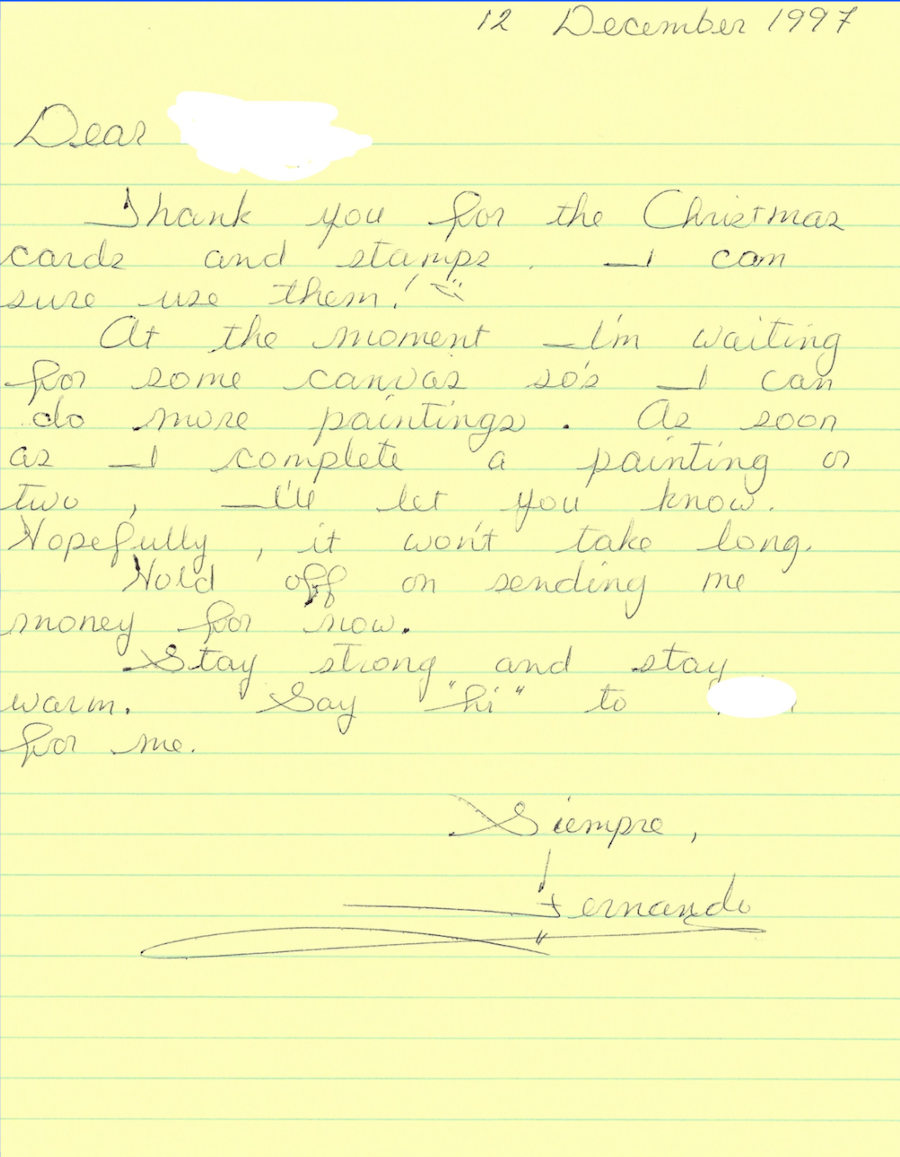 12 December 1997
Dear
Thank you for the Christmas
cards and stamps. I can
sure use them!
At the moment I'm waiting
for some canvas so's I can
do more paintings. As soon
as I complete a painting or
two, I'll let you know.
Hopefully, it won't take long.
Hold off on sending me
money for now.
Stay strong and stay
warm. Say "hi" to
for me.
Siempre,
Fernando